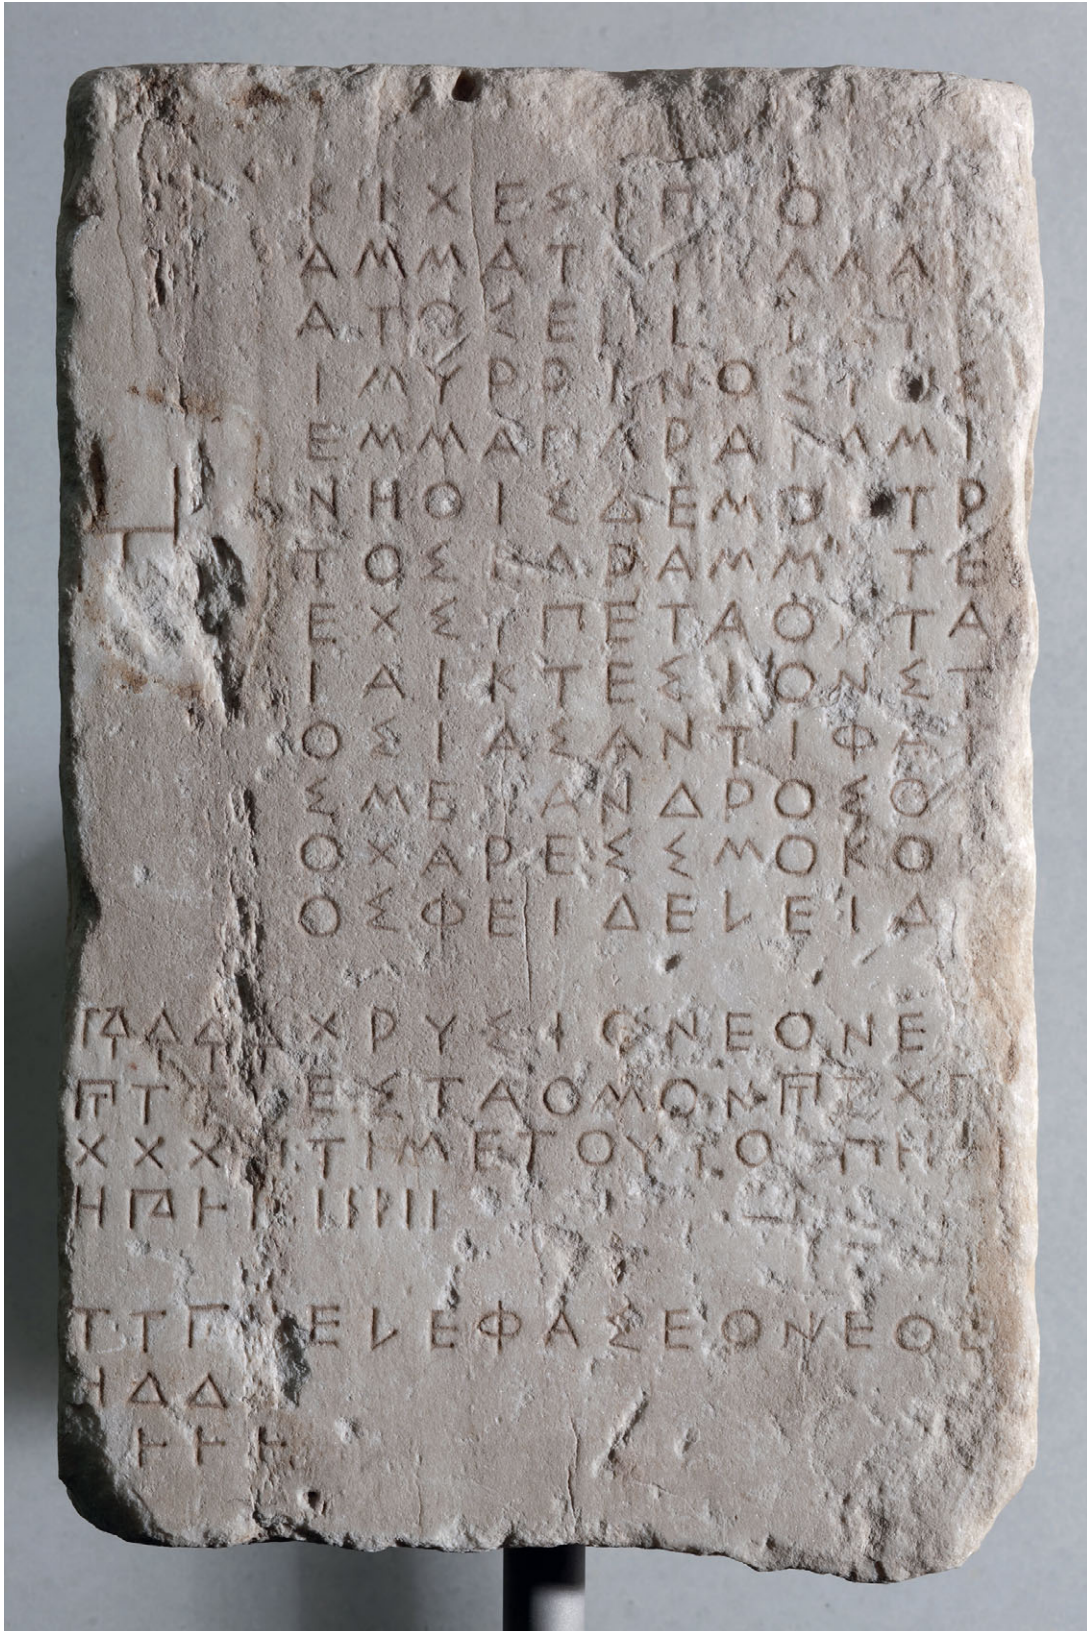 ΚΙΧΕΣΙΠΠΟ
ΑΜΜΑΤΕΥΕΑΛΑΛ
ΑΤΟΣΕΠΙΣΤΑΤΕ
ΙΜΥΡΡΙΝΟΣΙΟΣ
ΕΜΜΑΠΑΡΑΤΑΜΙ
ΝΗΟΙΣΔΕΜΟΣΤΡ
ΤΟΣΕΛΡΑΜΜΑΤΕ
ΕΧΣΥΠΕΤΑΟΝΤΑ
ΙΑΙΚΤΕΣΙΟΝΣΤ
ΟΣΙΑΣΑΝΤΙΦΑΤ
ΣΜΕΝΑΝΔΡΟΣΘ
ΟΧΑΡΕΣΣΜΟΚΟ
ΟΣΦΕΙΔΕLΕΙΔ
𐅄ΔΔΔ ΧΡΥΣΙΟΝΕΟΝΕ
𐅈ΤΤ ΕΣΤΑΘΜΟΝ𐅈ΤΧ𐅃
ΧΧΧ ΤΙΜΕΤΟΥΤΟ
Η𐅄𐅂𐅂 ΙΙΙΙΙ
ΤΤ𐅃 ΕLΕΦΑΣΕΟΝΕΘΕ
ΗΔΔ
𐅂𐅂𐅂